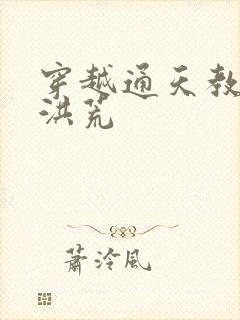 穿越通天教
洪荒
萧泠风